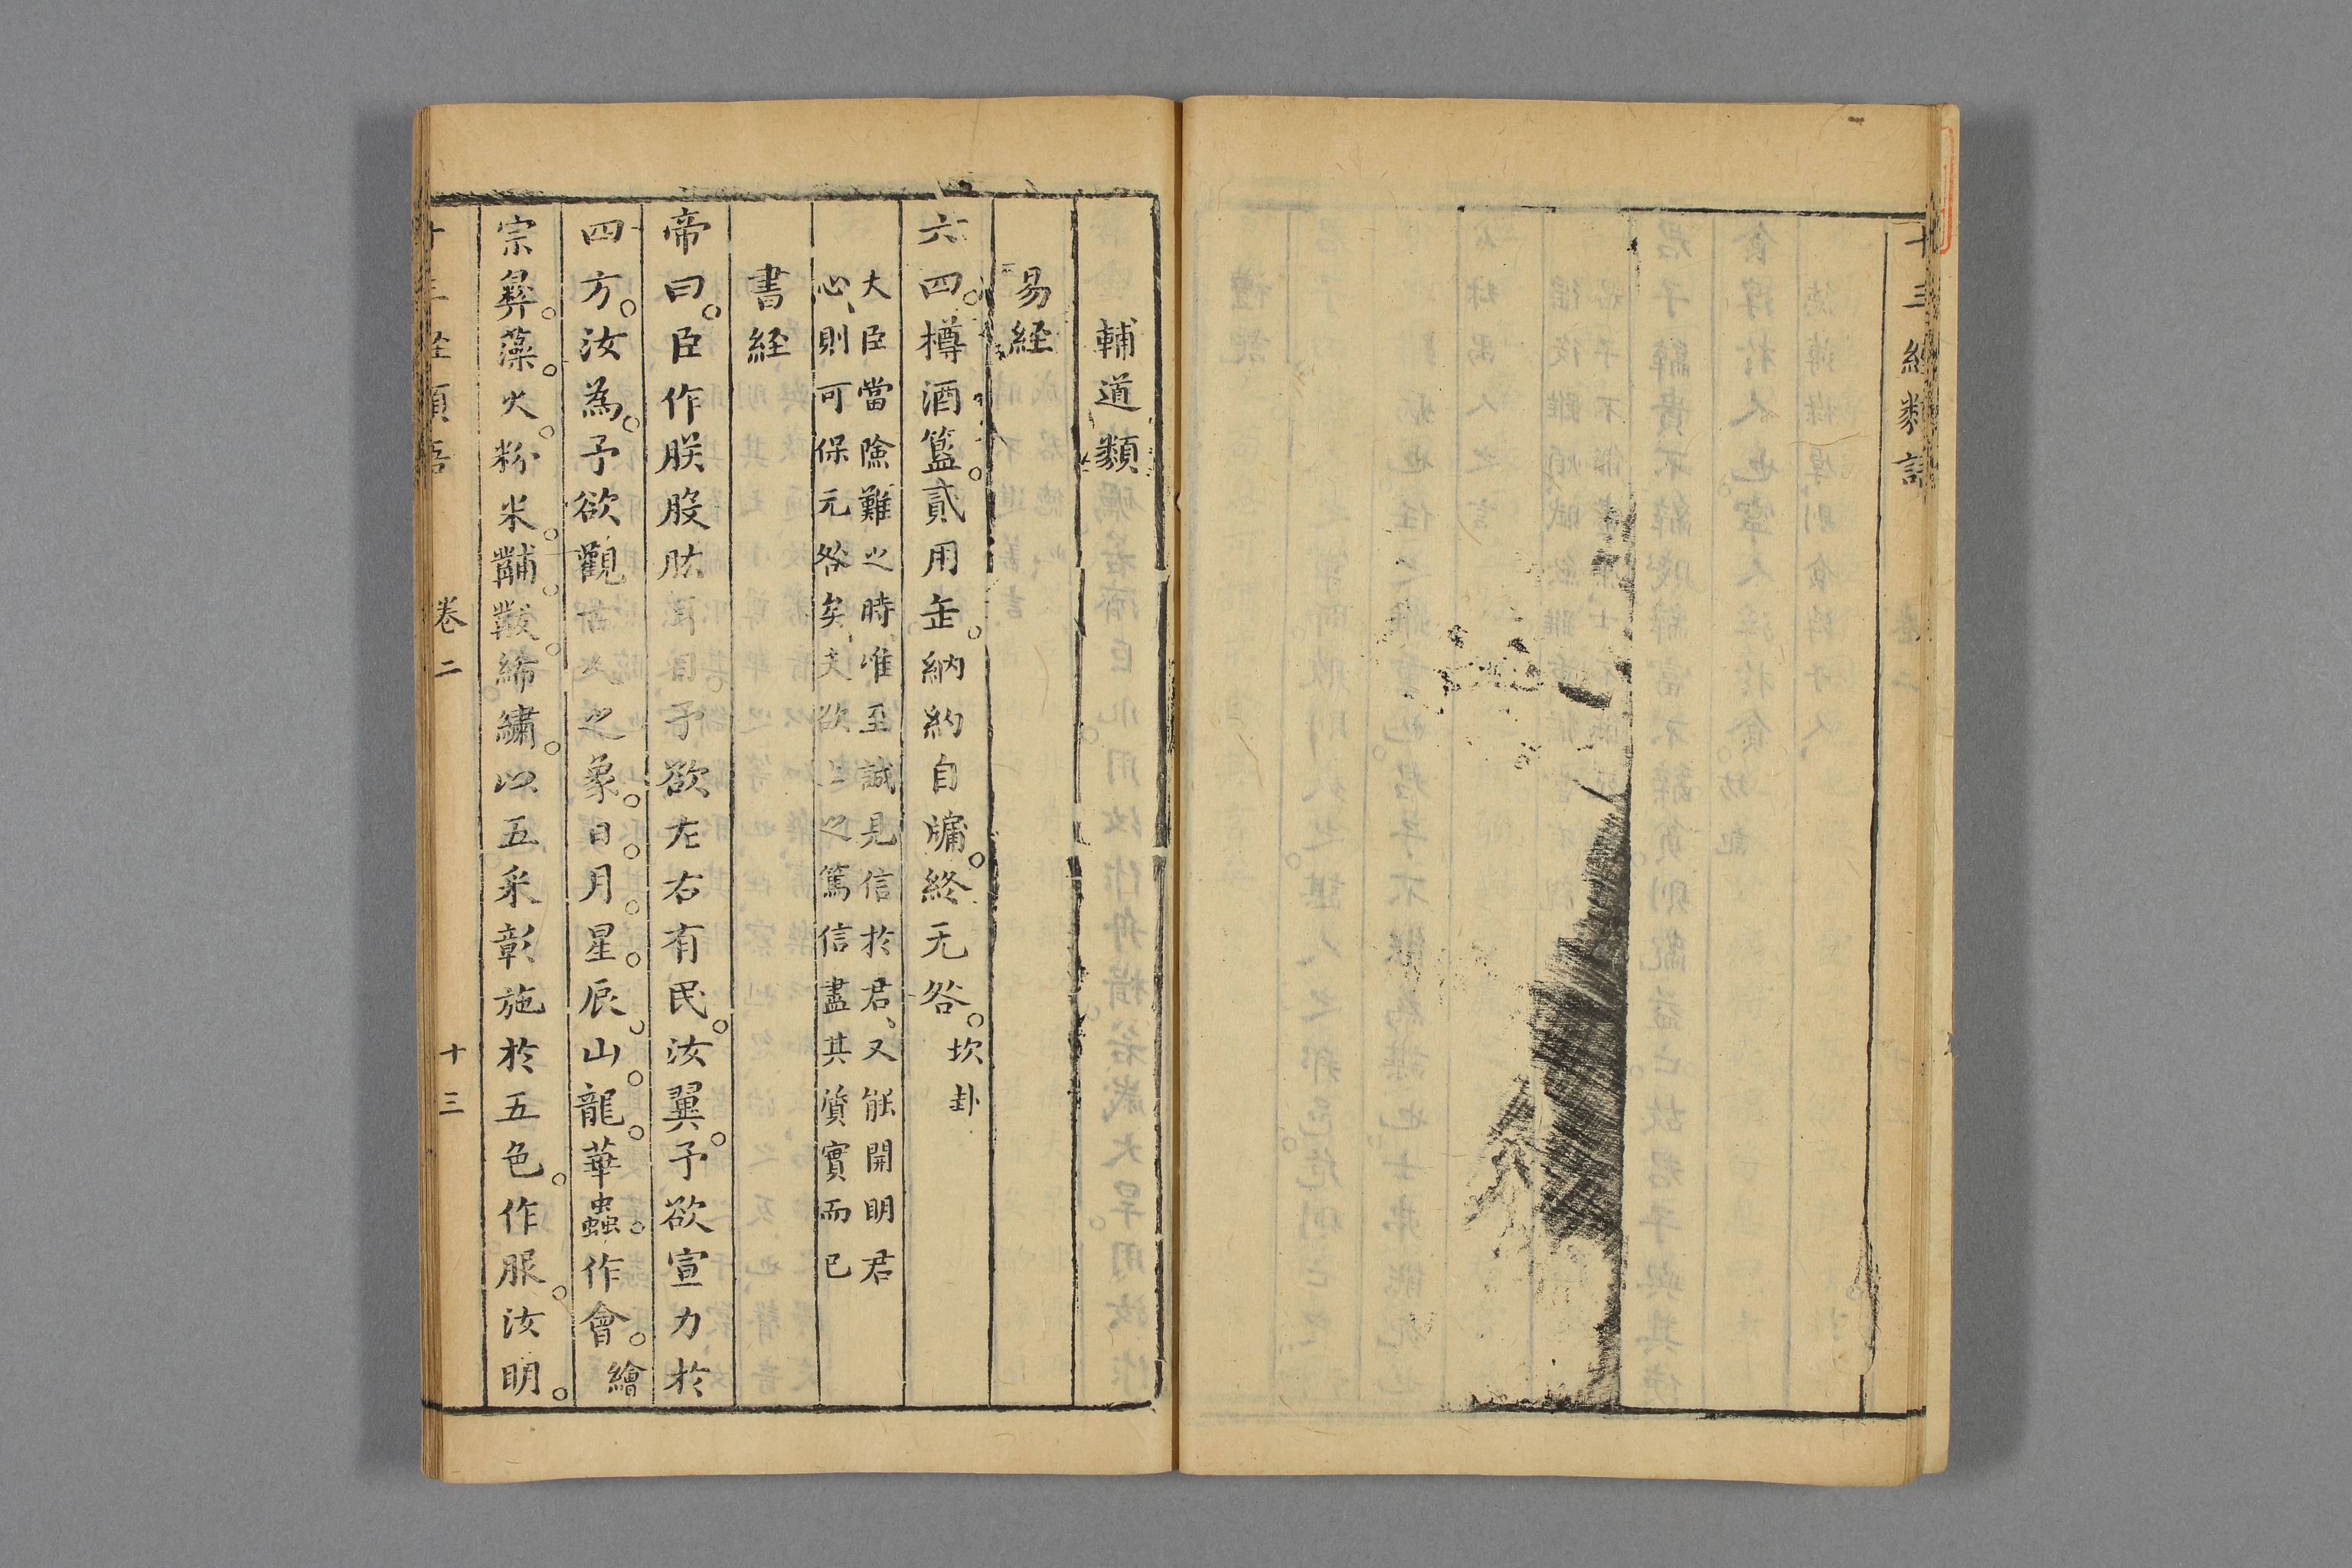 十三經類語
輔道類
易経
六四。樽酒簋。貳用缶。納約自牖。終无咎。坎卦
大臣當險難之時、惟至誠見信於君、又能開明君
心、則可保无咎矣、夫欲上之篤信盡其質實而已
書経
帝曰。臣作朕股肱耳目。予欲左右有民。汝翼。予欲宣力於
四方。汝為。予欲觀古人之象。日。月。星。辰。山。龍。華蟲。作會。繪
宗彝。藻。火。粉米。黼。黻。絺繡。以五采彰施於五色。作服。汝明。
十三經類語 卷二 十三